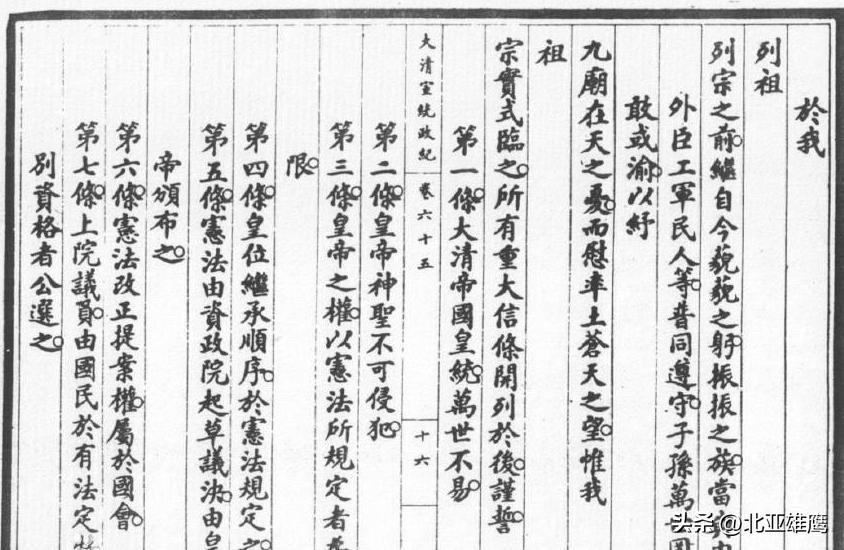 於我
列祖
列宗之前。繼自今藐藐之躬。振振之族。當
外臣工軍民人等。普同遵守。子孫萬世。
敢或渝。以紓
九廟在天之憂。而慰率土蒼天之望。惟我
祖
宗實式臨之。所有重大信條開列於後。謹誓。
第一條。大清帝國皇統。萬世不易。
大清宣統政紀 卷六十五 十六
第二條。皇帝神聖不可侵犯。
第三條。皇帝之權。以憲法所規定者爲
限。
第四條。皇位繼承順序。於憲法規定之。
第五條。憲法由資政院起草議決。由皇
帝頒布之。
第六條。憲法改正提案權屬於國會。
第七條。上院議員。由國民於有法定
別資格者公選之。
头条 @北亚雄鹰